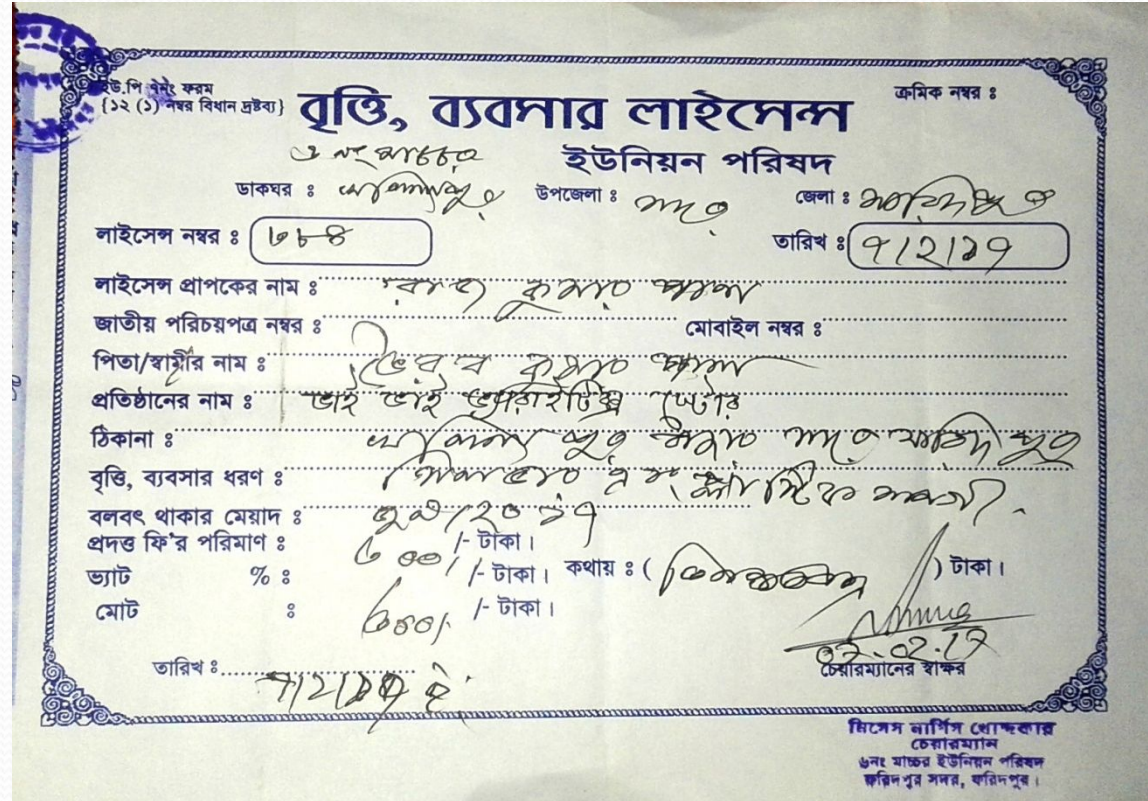 ইউ.পি ৭নং ফরম
{১২ (১) নম্বর বিধান দ্রষ্টব্য}
ক্রমিক নম্বর ঃ
বৃত্তি, ব্যবসার লাইসেন্স
ইউনিয়ন পরিষদ
ডাকঘর ঃ উপজেলা ঃ সদর জেলা ঃ ফরিদপুর
লাইসেন্স নম্বর ঃ ৩৮৪ তারিখ ঃ ৭/২/১৭
লাইসেন্স প্রাপকের নাম ঃ কুমার পাল
জাতীয় পরিচয়পত্র নম্বর ঃ মোবাইল নম্বর ঃ
পিতা/স্বামীর নাম ঃ ভৈরব কুমার পাল
প্রতিষ্ঠানের নাম ঃ ভাই ভাই ভ্যারাইটিজ স্টোর
ঠিকানা ঃ বাজার সদর ফরিদপুর
বৃত্তি, ব্যবসার ধরণ ঃ প্লাস্টিক সামগ্রী
বলবৎ থাকার মেয়াদ ঃ জুন/২০১৭
প্রদত্ত ফি'র পরিমাণ ঃ ৩০০/- টাকা।
ভ্যাট % ঃ /- টাকা। কথায় ঃ ( ) টাকা।
মোট ঃ ৩০০/- /- টাকা।
০৭.০২.১৭
চেয়ারম্যানের স্বাক্ষর
তারিখ ঃ
মিসেস নার্গিস খোন্দকার
চেয়ারম্যান
৬নং মাচ্চর ইউনিয়ন পরিষদ
ফরিদপুর সদর, ফরিদপুর।